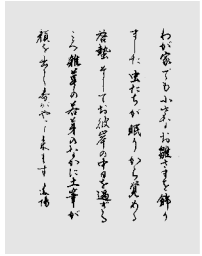 わが家でも小さなお雛さまを飾り
ました 虫たちが眠りから覚める
啓蟄 そしてお彼岸の中日を過ぎる
ころ 雑草の若芽のなかに土筆が
顔を出し 春がやって来ます